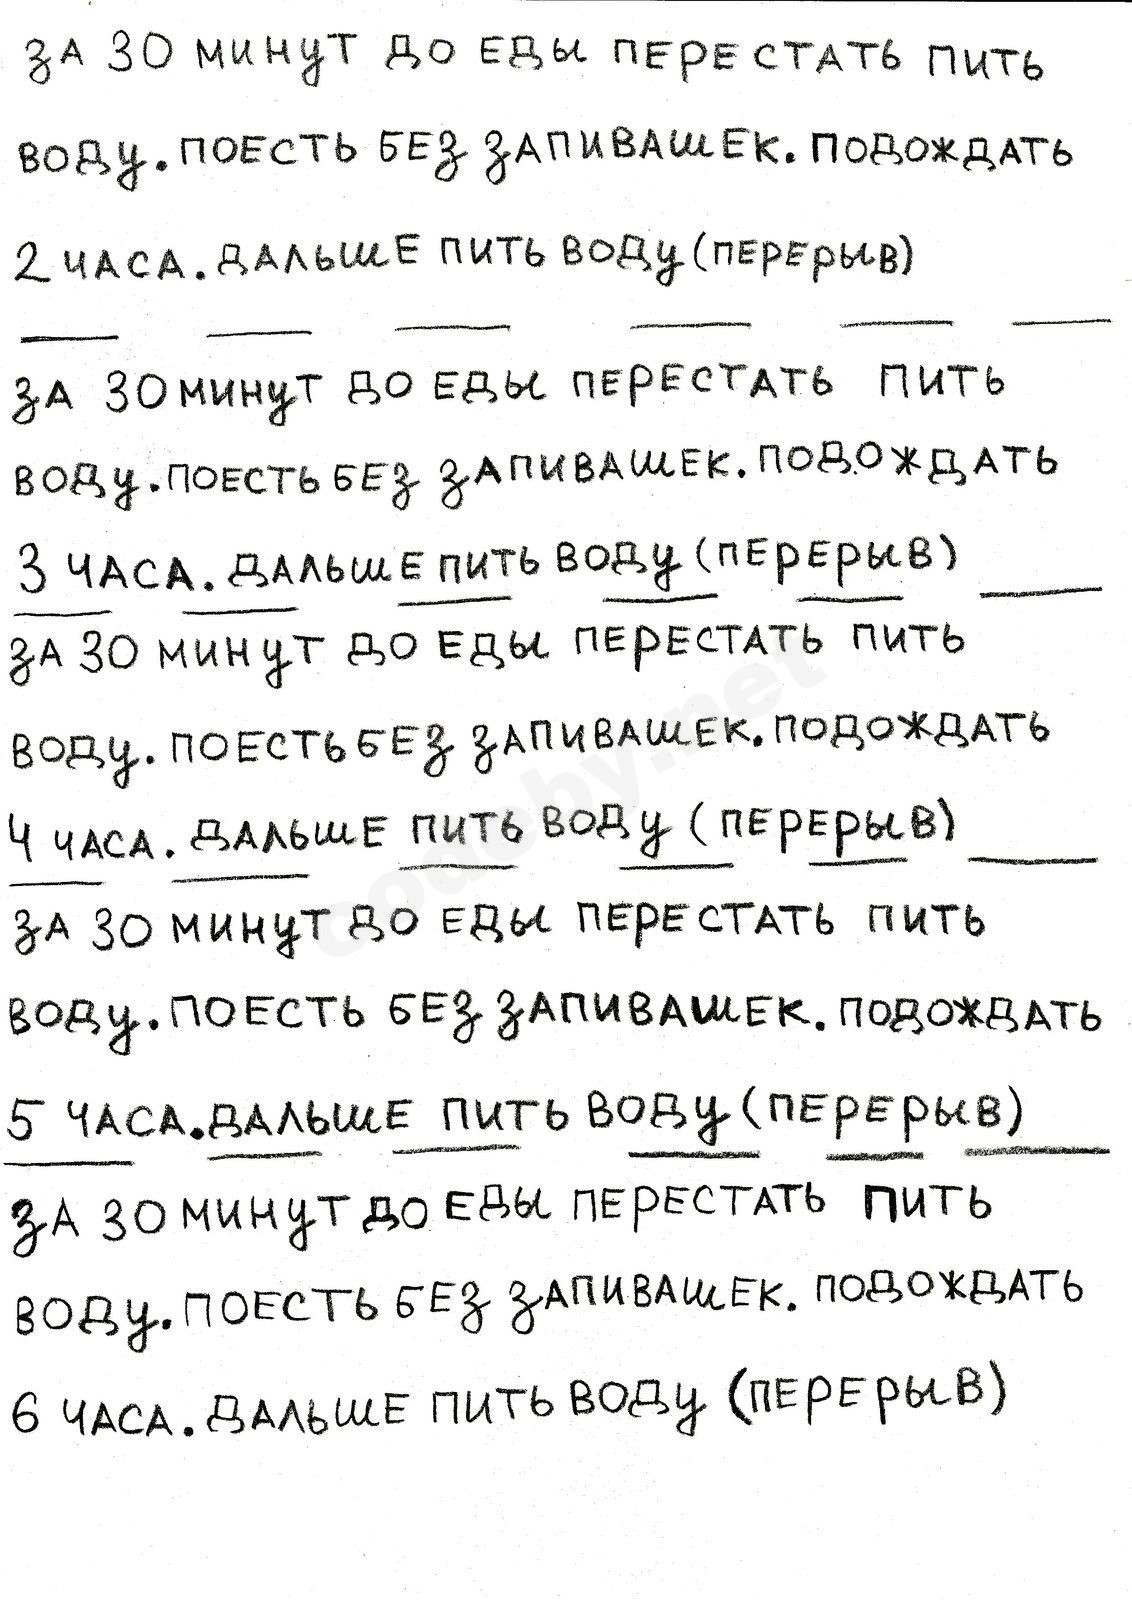 ЗА 30 МИНУТ ДО ЕДЫ ПЕРЕСТАТЬ ПИТЬ
ВОДУ. ПОЕСТЬ БЕЗ ЗАПИВАШЕК. ПОДОЖДАТЬ
2 ЧАСА. ДАЛЬШЕ ПИТЬ ВОДУ (ПЕРЕРЫВ)
ЗА 30 МИНУТ ДО ЕДЫ ПЕРЕСТАТЬ ПИТЬ
ВОДУ. ПОЕСТЬ БЕЗ ЗАПИВАШЕК. ПОДОЖДАТЬ
3 ЧАСА. ДАЛЬШЕ ПИТЬ ВОДУ (ПЕРЕРЫВ)
ЗА 30 МИНУТ ДО ЕДЫ ПЕРЕСТАТЬ ПИТЬ
ВОДУ. ПОЕСТЬ БЕЗ ЗАПИВАШЕК. ПОДОЖДАТЬ
4 ЧАСА. ДАЛЬШЕ ПИТЬ ВОДУ (ПЕРЕРЫВ)
ЗА 30 МИНУТ ДО ЕДЫ ПЕРЕСТАТЬ ПИТЬ
ВОДУ. ПОЕСТЬ БЕЗ ЗАПИВАШЕК. ПОДОЖДАТЬ
5 ЧАСА. ДАЛЬШЕ ПИТЬ ВОДУ (ПЕРЕРЫВ)
ЗА 30 МИНУТ ДО ЕДЫ ПЕРЕСТАТЬ ПИТЬ
ВОДУ. ПОЕСТЬ БЕЗ ЗАПИВАШЕК. ПОДОЖДАТЬ
6 ЧАСА. ДАЛЬШЕ ПИТЬ ВОДУ (ПЕРЕРЫВ)